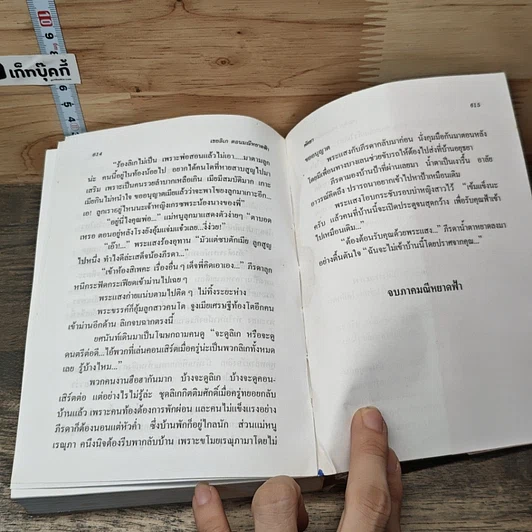 10
9
8
6
5
เก็ทบุ๊คกี้
614
เชลลิมา ตอนมณีหยาดฟ้า
"ร้องลิกไม่เป็น เพราะพ่อสอนแล้วไม่เอา....มาตามลูก
น่ะ คนนี้อยู่ในท้องน้อยไป อยากได้คนโตที่หายสาบสูญไปมา
เสริม เพราะเป็นคนรวยล้ำมากหมื่นเกิน เมียมีสมบัติมาก เกาะ
เมียกินไม่หนำใจ ขออนุญาตเมียแล้วว่าจะพาของลูกมาเกาะอีก...
เอ! ลูกเราอยู่ไหนนะเจ้าหญิงเกรซพระน้องนางของพี่"
"อยู่นี่ไงคุณพ่อ..." แม่หนูลูกมาแสดงตัวว่ายๆ "ตาบอด
เหรอ ตอนอยู่หลังโรงยังอุ้มแจ่มแจ้วเลย...งี่ง่วย!"
"เอ๊ะ!..." พระแสงร้องอุทาน "มัวแต่ซบตักเมีย ลูกสูญ
ไปหนึ่ง ทำไงดีล่ะเสด็จน้องภีรดา..."
"เข้าห้องสิเพคะ เรื่องอื่นๆ เด็จที่คิดเอาเอง..." ภีรดาลุก
หนีกระฟัดกระเฟียดเข้าม่านไปเฉยๆ
พระแสงก่ายแน่บตามไปติดๆ ไม่ทิ้งระยะห่าง
พระขรรค์ก็อุ้มลูกสาวคนโต จูงเมียเศรษฐีท้องโตอีกคน
เข้าม่านอีกด้าน ลิเกจบฉากตรงนี้
ยตนันท์เดินมาเป็นโฆษกถามคนดู "จะดูลิเก หรือจะดู
ดนตรีต่อดี...ไอ้พวกที่เล่นคอนเสิร์ตเมื่อครู่น่ะเป็นพวกลิเกทั้งหมด
เลย รู้บ้างไหม..."
พวกคนงานฮือฮากันมาก บ้างจะดูลิเก บ้างจะดูคอน-
เสิร์ตต่อ แต่อย่างไรไม่รู้ล่ะ ชุดลิเกกิตติมศักดิ์เมื่อครู่ทยอยกลับ
บ้านแล้ว เพราะคนท้องต้องการพักผ่อน และคนไม่แข็งแรงอย่าง
ภีรดาก็ต้องนอนแต่หัวค่ำ ซึ่งบ้านพักก็อยู่ใกล้นัก ส่วนแม่หนู
เรณุภา คนึงนิจต้องรีบพากลับบ้าน เพราะขโมยเรณุภามาโดยไม่
615
ขออนุญาต
พระแสงกับภีรดากลับมาก่อน นั่งกุมมือกันมาตอนหลัง
โดยมีเพื่อนทางบางเอนช่วยขับรถให้ต้องไปส่งที่บ้านอยุธยา
ภีรดามองป่าริมน้ำที่ผ่านเลยมา น้ำตาเป็นเงารื้น อาลัย
อาวรณ์คิดถึง ปรารถนาอยากเข้าไปหาป่าเหมือนเดิม
พระแสงโอบกระชับรอบบ่าหญิงสาวไว้ "เข้มแข็งนะ
ครับ แล้วคนที่บ้านนี้จะเปิดประตูขนสุดกว้าง เพื่อรับคุณฟ้าเข้า
ไปเหมือนเดิม..."
"ต้องต้อนรับคุณด้วยพระแสง..." ภีรดาน้ำตาหยาดลงมา
อย่างตื้นตันใจ "ฉันจะไม่เข้าบ้านนี้โดยปราศจากคุณ..."
จบภาคมณีหยาดฟ้า